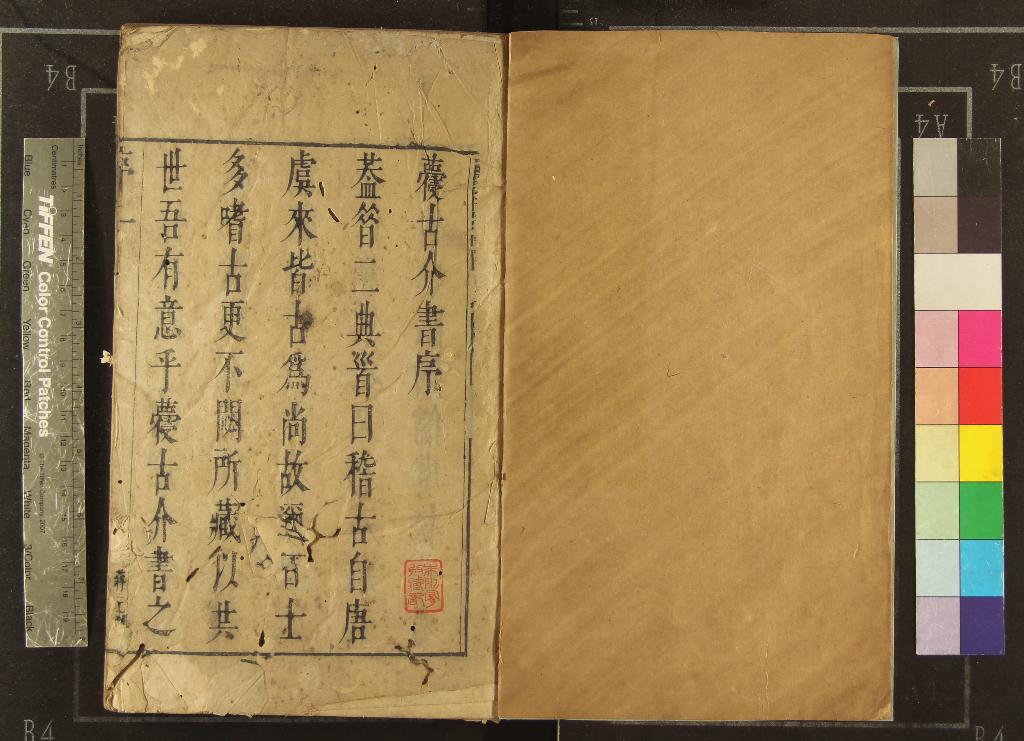 古介書序
葢二典首曰稽古自唐
虞來皆古爲尚故士
多嗜古更不閟所藏以共
世吾有意乎古介書之
序 一
B4
B4
A4
B4
B4
TIFFEN Color Control Patches
Inches
Centimetres
Blue Cyan Green Yellow Red Magenta White 3/Color Black